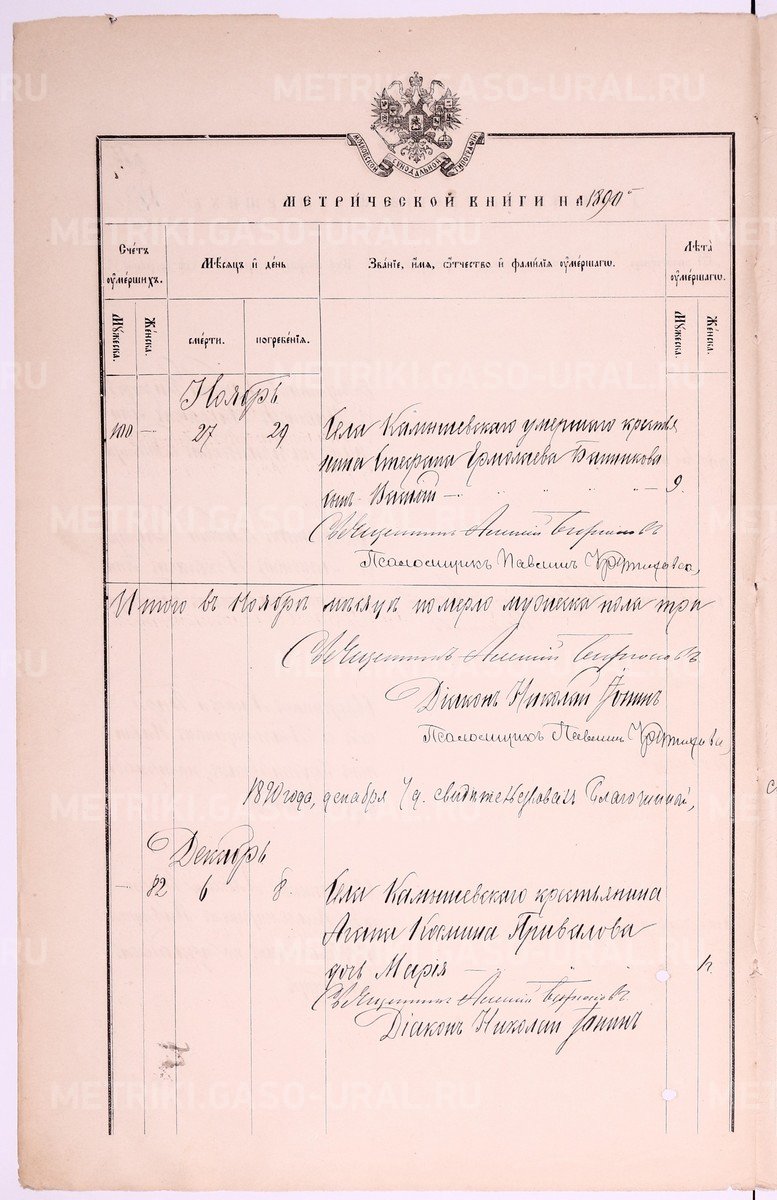 МОСКОВСКОЙ СѴНОДАЛЬНОЙ ТИПОГРАФІИ
МЕТРИ́ЧЕСКОЙ КНИ́ГИ НА 1890
Сче́тъ оу҆ме́ршихъ.
Мѣ́сѧцъ и҆ де́нь
Зва́нїе, и҆́мѧ, ѻ҆́тчество и҆ фами́лїѧ оу҆ме́ршагѡ.
Лѣ́та оу҆ме́ршагѡ.
Мꙋ́жеска.
Же́нска.
сме́рти.
погребе́нїѧ.
Мꙋ́жеска.
Же́нска.
Ноябрь
100 — 27 29 Села Камышевскаго умершаго крестья
нина Стефана Ермолаева Банникова
сынъ — 9.
Священникъ Алексій
Псаломщикъ Павлинъ
Итого въ Ноябрѣ мѣсяцѣ померло мужеска пола три
Священникъ Алексій
Діаконъ Николай Іонинъ
Псаломщикъ Павлинъ
1890 года, декабря 7 д. свидѣтельствовалъ Благочинный,
Декабрь
— 82 6 8. Села Камышевскаго крестьянина
Агапа Космина Привалова
дочь Марія —
Священникъ Алексій
Діаконъ Николай Іонинъ
METRIKI.GASO-URAL.RU